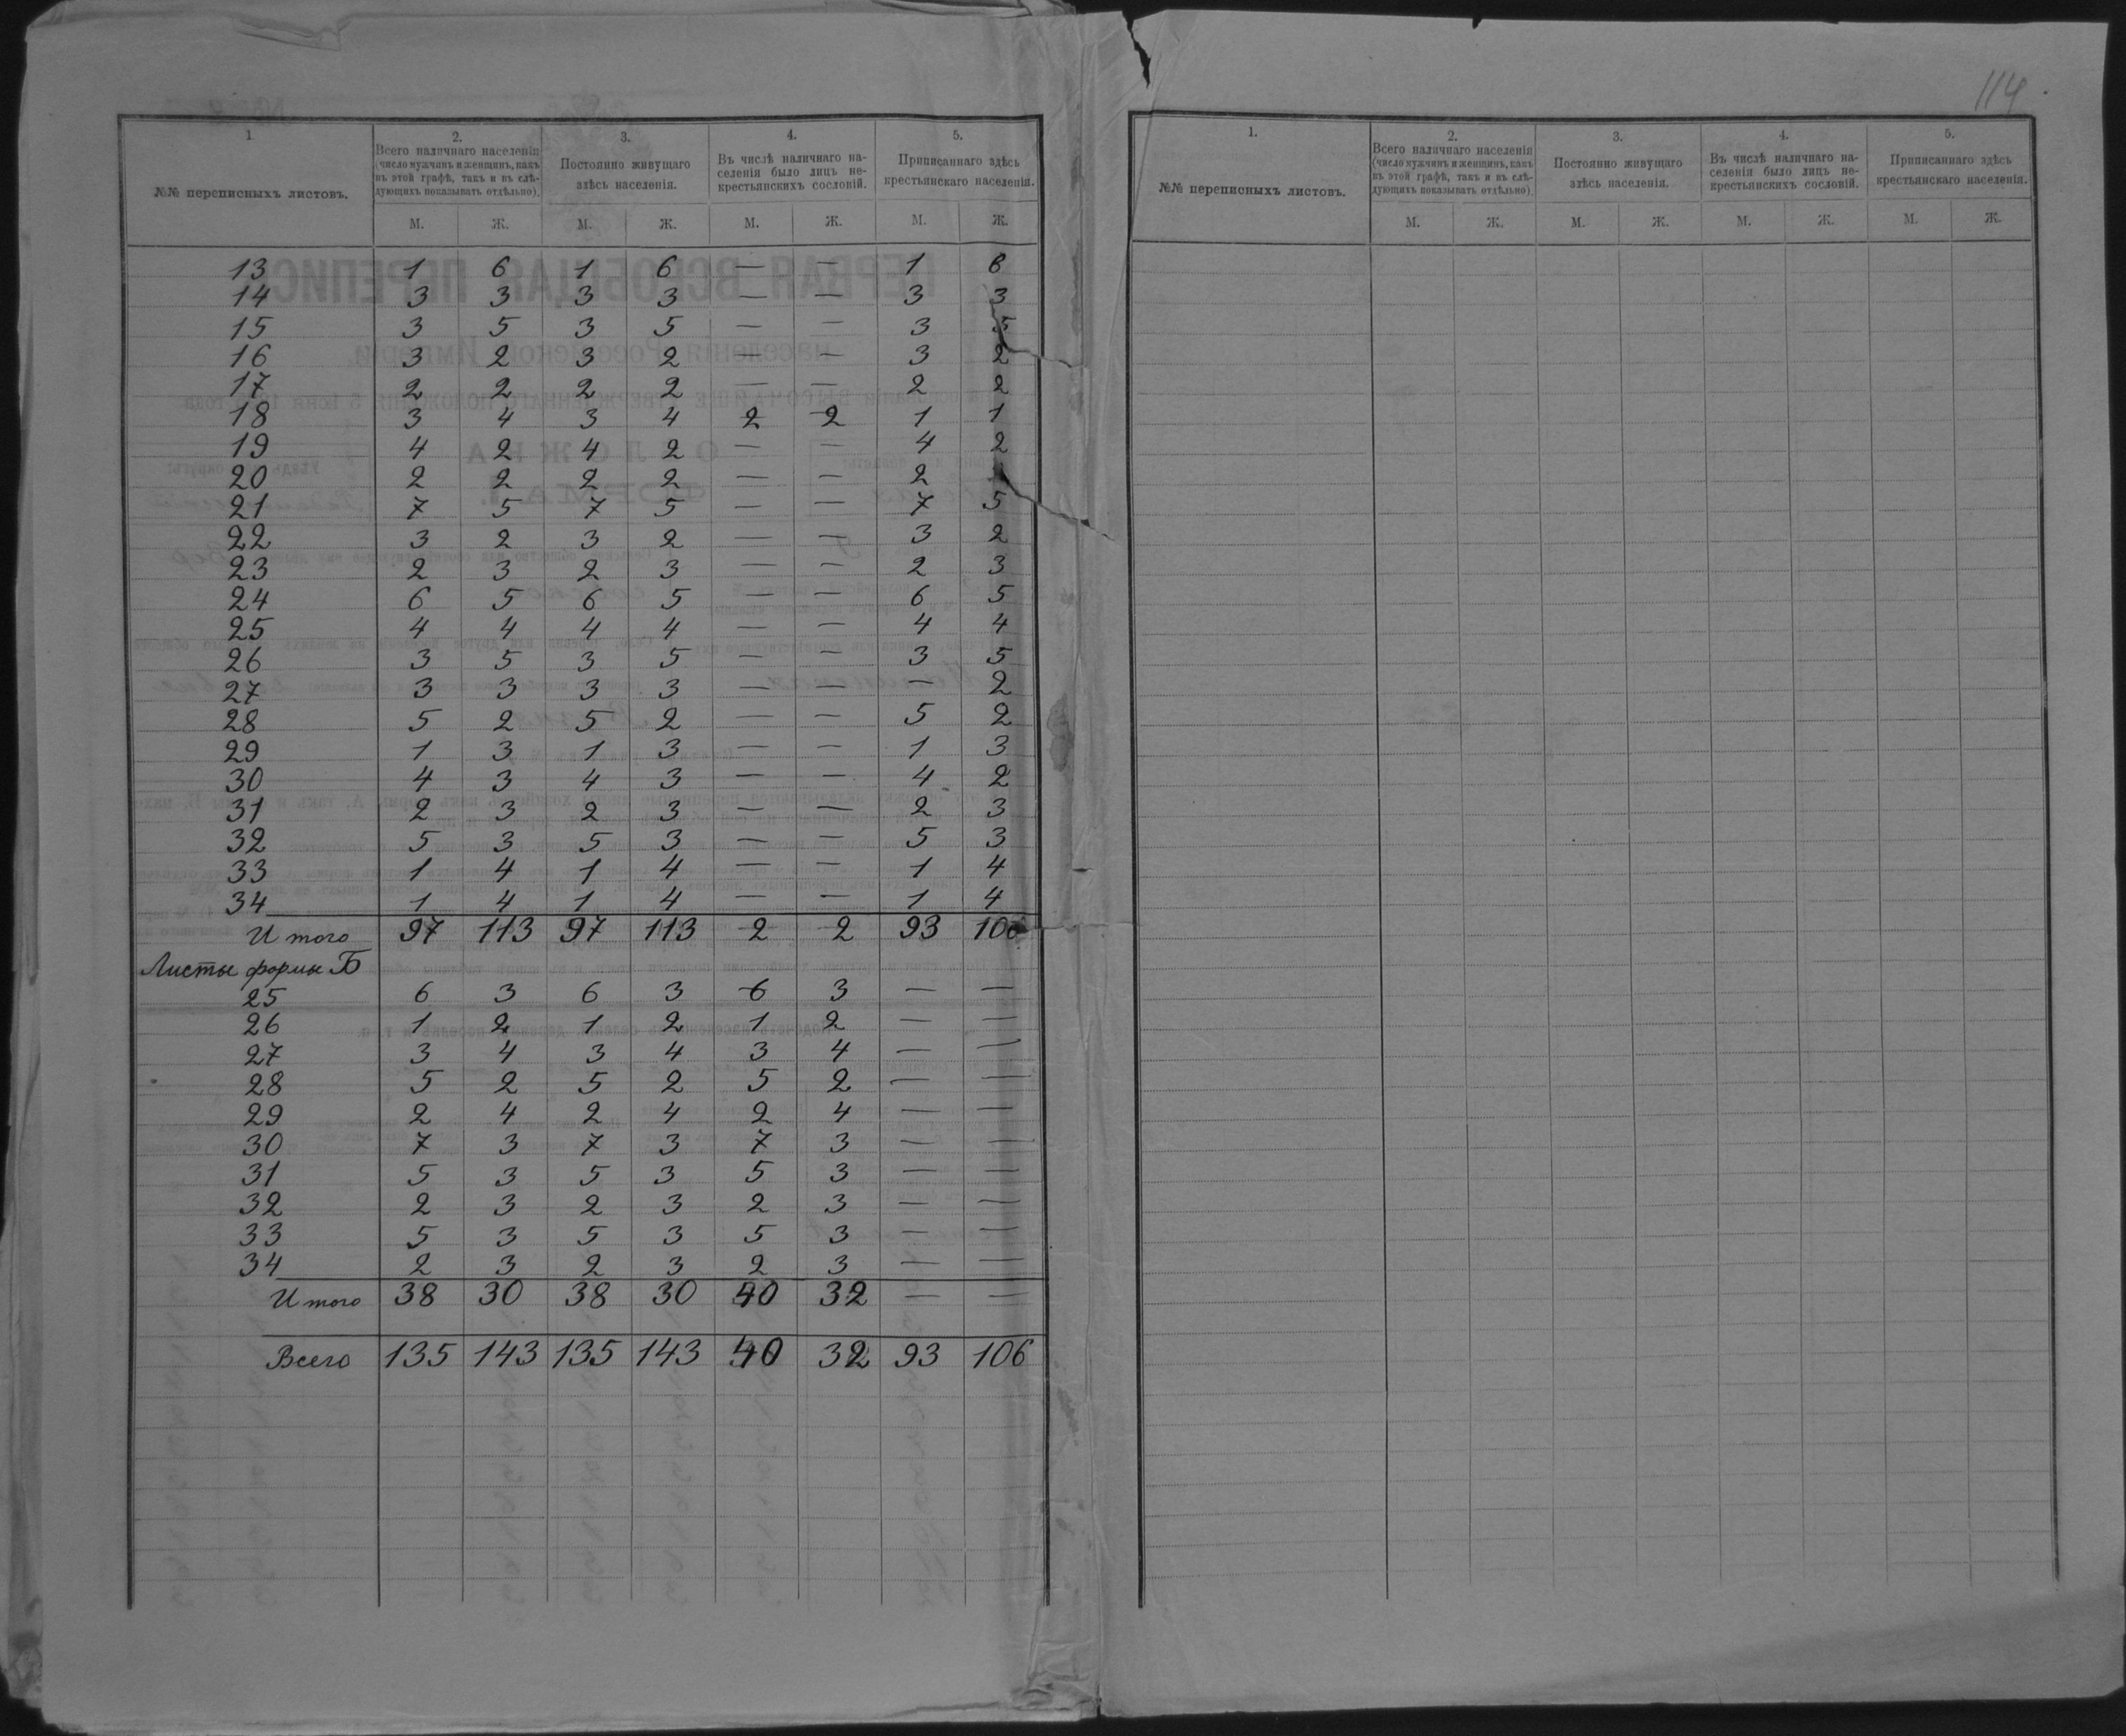 114
1 2. 3. 4. 5.
№№ переписныхъ листовъ. Всего наличнаго населенія (число мужчинъ и женщинъ, какъ въ этой графѣ, такъ и въ слѣдующихъ показывать отдѣльно). Постоянно живущаго здѣсь населенія. Въ числѣ наличнаго населенія было лицъ не-крестьянскихъ сословій. Приписаннаго здѣсь крестьянскаго населенія.
М. Ж. М. Ж. М. Ж. М. Ж.
13 1 6 1 6 — — 1 6
14 3 3 3 3 — — 3 3
15 3 5 3 5 — — 3 5
16 3 2 3 2 — — 3 2
17 2 2 2 2 — — 2 2
18 3 4 3 4 2 2 1 1
19 4 2 4 2 — — 4 2
20 2 2 2 2 — — 2
21 7 5 7 5 — — 7 5
22 3 2 3 2 — — 3 2
23 2 3 2 3 — — 2 3
24 6 5 6 5 — — 6 5
25 4 4 4 4 — — 4 4
26 3 5 3 5 — — 3 5
27 3 3 3 3 — — — 2
28 5 2 5 2 — — 5 2
29 1 3 1 3 — — 1 3
30 4 3 4 3 — — 4 2
31 2 3 2 3 — — 2 3
32 5 3 5 3 — — 5 3
33 1 4 1 4 — — 1 4
34 1 4 1 4 — — 1 4
Итого 97 113 97 113 2 2 93 106
Листы формы Б
25 6 3 6 3 6 3 — —
26 1 2 1 2 1 2 — —
27 3 4 3 4 3 4 — —
28 5 2 5 2 5 2 — —
29 2 4 2 4 2 4 — —
30 7 3 7 3 7 3 — —
31 5 3 5 3 5 3 — —
32 2 3 2 3 2 3 — —
33 5 3 5 3 5 3 — —
34 2 3 2 3 2 3 — —
Итого 38 30 38 30 40 32 — —
Всего 135 143 135 143 40 32 93 106
1. 2. 3. 4. 5.
№№ переписныхъ листовъ. Всего наличнаго населенія (число мужчинъ и женщинъ, какъ въ этой графѣ, такъ и въ слѣдующихъ показывать отдѣльно). Постоянно живущаго здѣсь населенія. Въ числѣ наличнаго населенія было лицъ не-крестьянскихъ сословій. Приписаннаго здѣсь крестьянскаго населенія.
М. Ж. М. Ж. М. Ж. М. Ж.